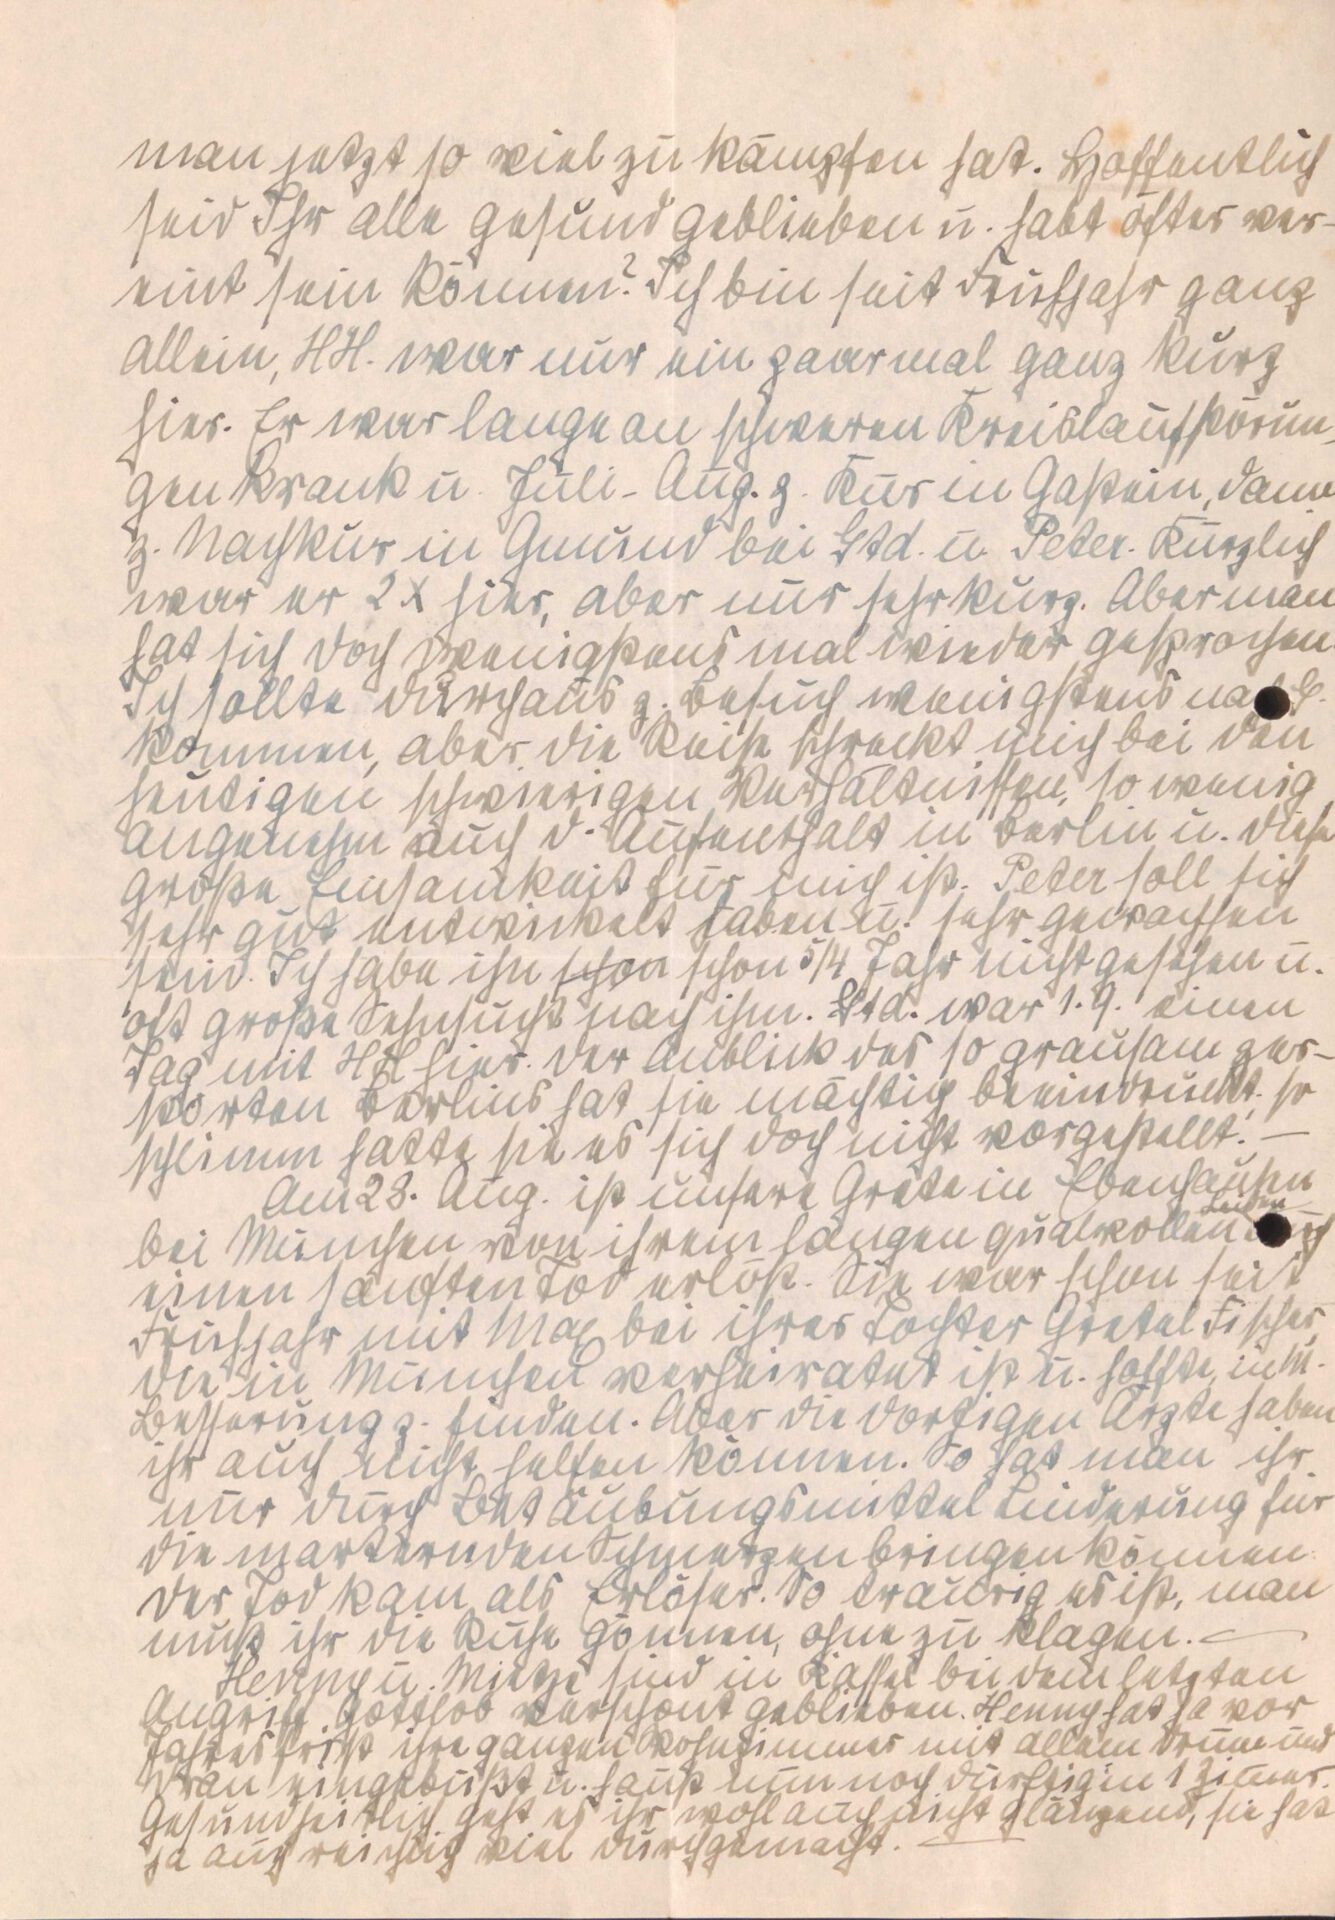 man jetzt so viel zu kämpfen hat. Hoffentlich
seid Ihr alle gesund geblieben u. habt öfter ver-
eint sein können? Ich bin seit Frühjahr ganz
allein, HH. war nur ein paarmal ganz kurz
hier. Er war lange an schweren Kreislaufstörun-
gen krank u. Juli - Aug. z. Kur in Gastein, dann
z. Nachkur in Gmund bei Gtd. u. Peter. Kürzlich
war er 2 x hier, aber nur sehr kurz. Aber man
hat sich doch wenigstens mal wieder gesprochen.
Ich sollte durchaus z. Besuch wenigstens nach G.
kommen, aber die Reise schreckt mich bei den
heutigen schwierigen Verhältnissen, so wenig
angenehm auch d. Aufenthalt in Berlin u. diese
große Einsamkeit für mich ist. Peter soll sich
sehr gut entwickelt haben u. sehr gewachsen
sein. Ich habe ihn schon schon 5/4 Jahr nicht gesehen u.
oft große Sehnsucht nach ihm. Gtd. war 1.9. einen
Tag mit HH hier. Der Anblick des so grausam zer-
störten Berlins hat sie mächtig beeindruckt; so
schlimm hatte sie es sich doch nicht vorgestellt. —
Am 28. Aug. ist unsere Grete in Ebenhausen
bei München von ihrem langen qualvollen Leiden durch
einen sanften Tod erlöst. Sie war schon seit
Frühjahr mit Max bei ihrer Tochter Gretel Fischer,
die in München verheiratet ist u. hoffte, in M.
Besserung z. finden. Aber die dortigen Ärzte haben
ihr auch nicht helfen können. So hat man ihr
nur durch Betäubungsmittel Linderung für
die marternden Schmerzen bringen können.
Der Tod kam als Erlöser. So traurig es ist, man
muß ihr die Ruhe gönnen, ohne zu klagen. —
Henny u. Mieze sind in Kassel bei dem letzten
Angriff Gottlob verschont geblieben. Henny hat ja vor
Jahresfrist ihre ganzen Wohnzimmer mit allem Drum und
Dran eingebüßt u. haust nun noch dürftig in 1 Zimmer.
Gesundheitlich geht es ihr wohl auch nicht glänzend, sie hat
ja auch reichlich viel durchgemacht. —